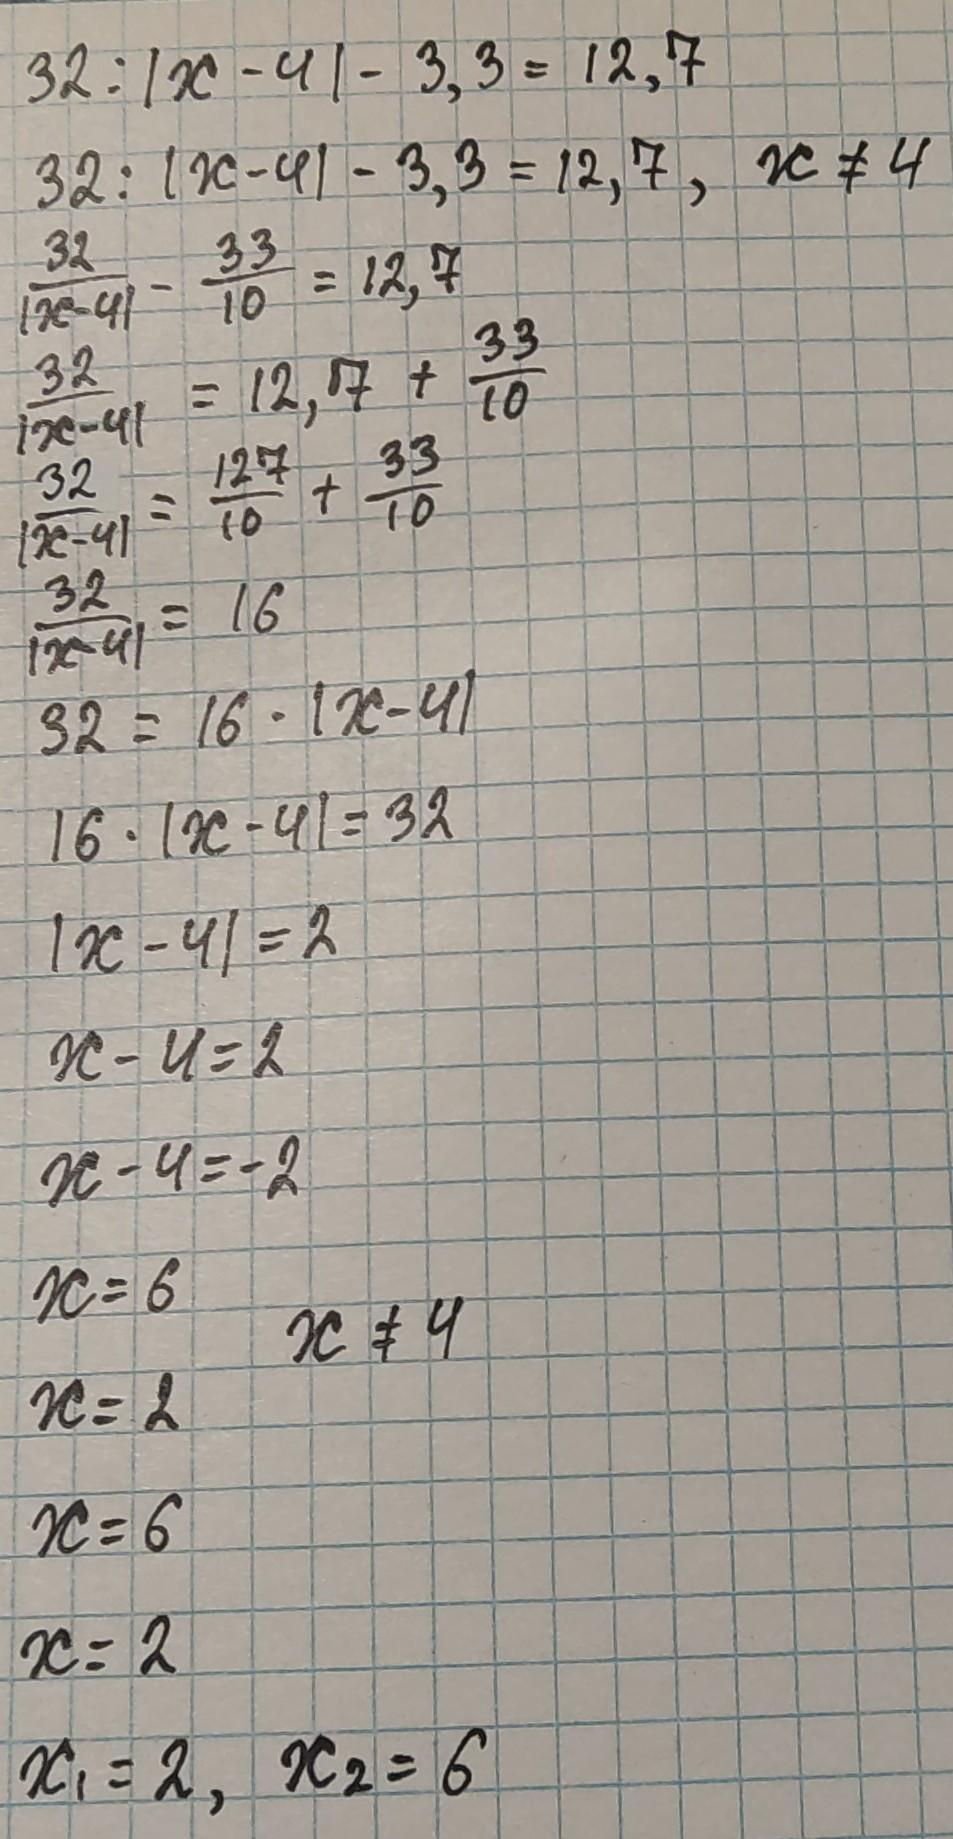 32:|x-4|-3,3=12,7
32:|x-4|-3,3=12,7, x≠4
32/|x-4| - 33/10 = 12,7
32/|x-4| = 12,7 + 33/10
32/|x-4| = 127/10 + 33/10
32/|x-4| = 16
32 = 16·|x-4|
16·|x-4|=32
|x-4|=2
x-4=2
x-4=-2
x=6
x≠4
x=2
x=6
x=2
x₁=2, x₂=6